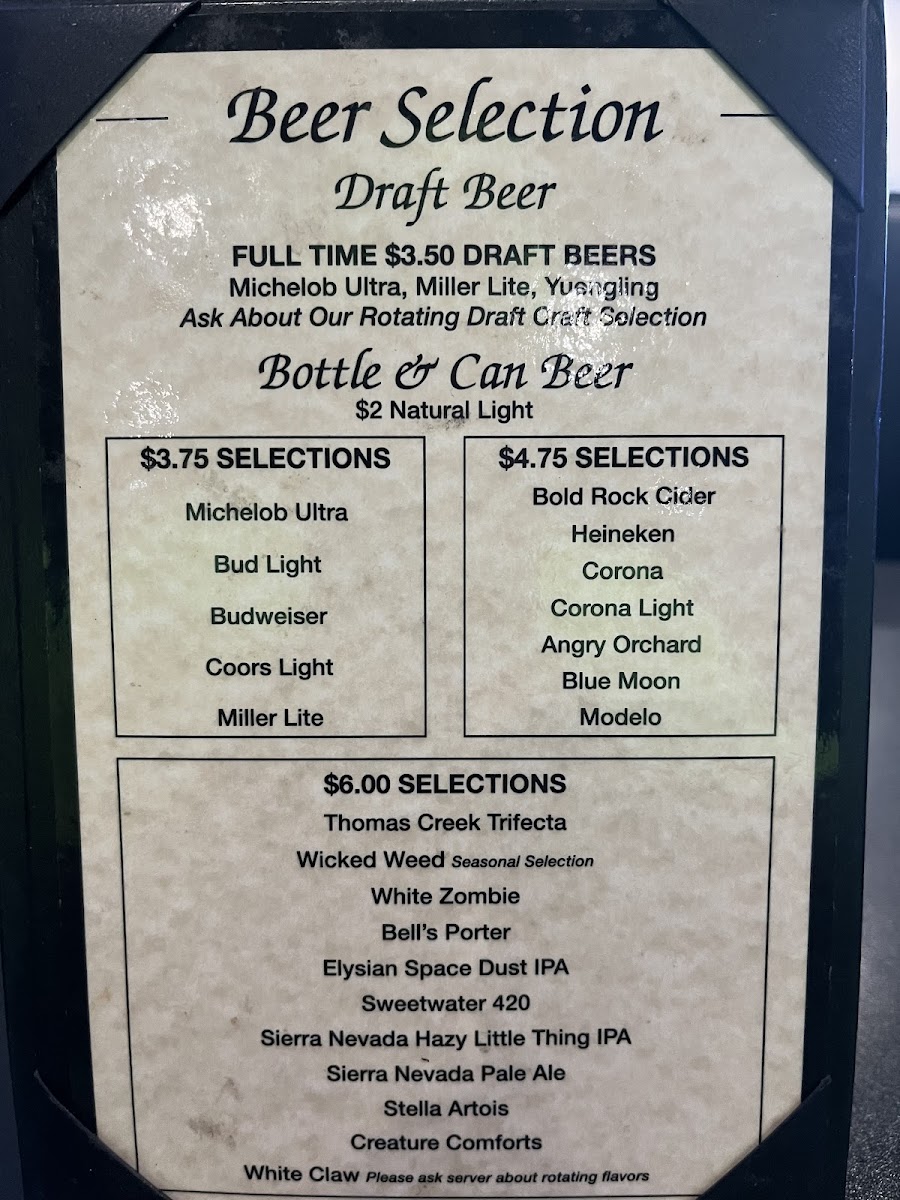 Beer Selection
Draft Beer
FULL TIME $3.50 DRAFT BEERS
Michelob Ultra, Miller Lite, Yuengling
Ask About Our Rotating Draft Craft Selection
Bottle & Can Beer
$2 Natural Light
$3.75 SELECTIONS
Michelob Ultra
Bud Light
Budweiser
Coors Light
Miller Lite
$4.75 SELECTIONS
Bold Rock Cider
Heineken
Corona
Corona Light
Angry Orchard
Blue Moon
Modelo
$6.00 SELECTIONS
Thomas Creek Trifecta
Wicked Weed Seasonal Selection
White Zombie
Bell's Porter
Elysian Space Dust IPA
Sweetwater 420
Sierra Nevada Hazy Little Thing IPA
Sierra Nevada Pale Ale
Stella Artois
Creature Comforts
White Claw Please ask server about rotating flavors